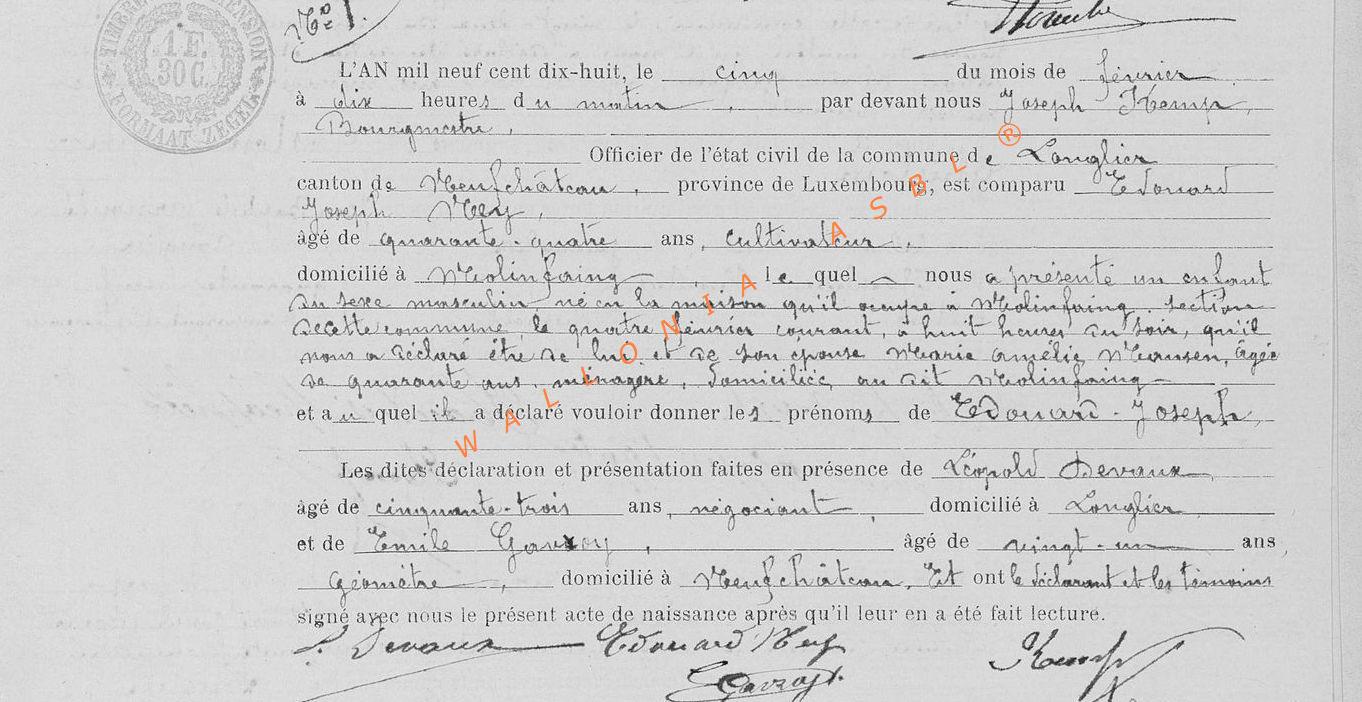 TIMBRE DIMENSION
1 F.
30 C.
FORMAAT ZEGEL
N° 1.
L'AN mil neuf cent dix-huit, le cinq du mois de février
à dix heures du matin, par devant nous Joseph Kemp,
Bourgmestre,
Officier de l'état civil de la commune de Longlier
canton de Neufchâteau, province de Luxembourg, est comparu Edouard
Joseph Ney,
âgé de quarante-quatre ans, cultivateur,
domicilié à Molinfaing, le quel nous a présenté un enfant
du sexe masculin né en la maison qu'il occupe à Molinfaing, section
de cette commune le quatre février courant, à huit heures du soir, qu'il
nous a déclaré être de lui et de son épouse Marie Amélie Mansen, âgée
de quarante ans, ménagère, domiciliée au dit Molinfaing
et au quel il a déclaré vouloir donner les prénoms de Edouard-Joseph,
Les dites déclaration et présentation faites en présence de Léopold Devaux
âgé de cinquante-trois ans, négociant, domicilié à Longlier
et de Emile Gavroy, âgé de vingt-un ans,
géomètre, domicilié à Neufchâteau. Et ont le déclarant et les témoins
signé avec nous le présent acte de naissance après qu'il leur en a été fait lecture.
L. Devaux Edouard Ney Kemp
Gavroy
WALLONIA ASBL ®